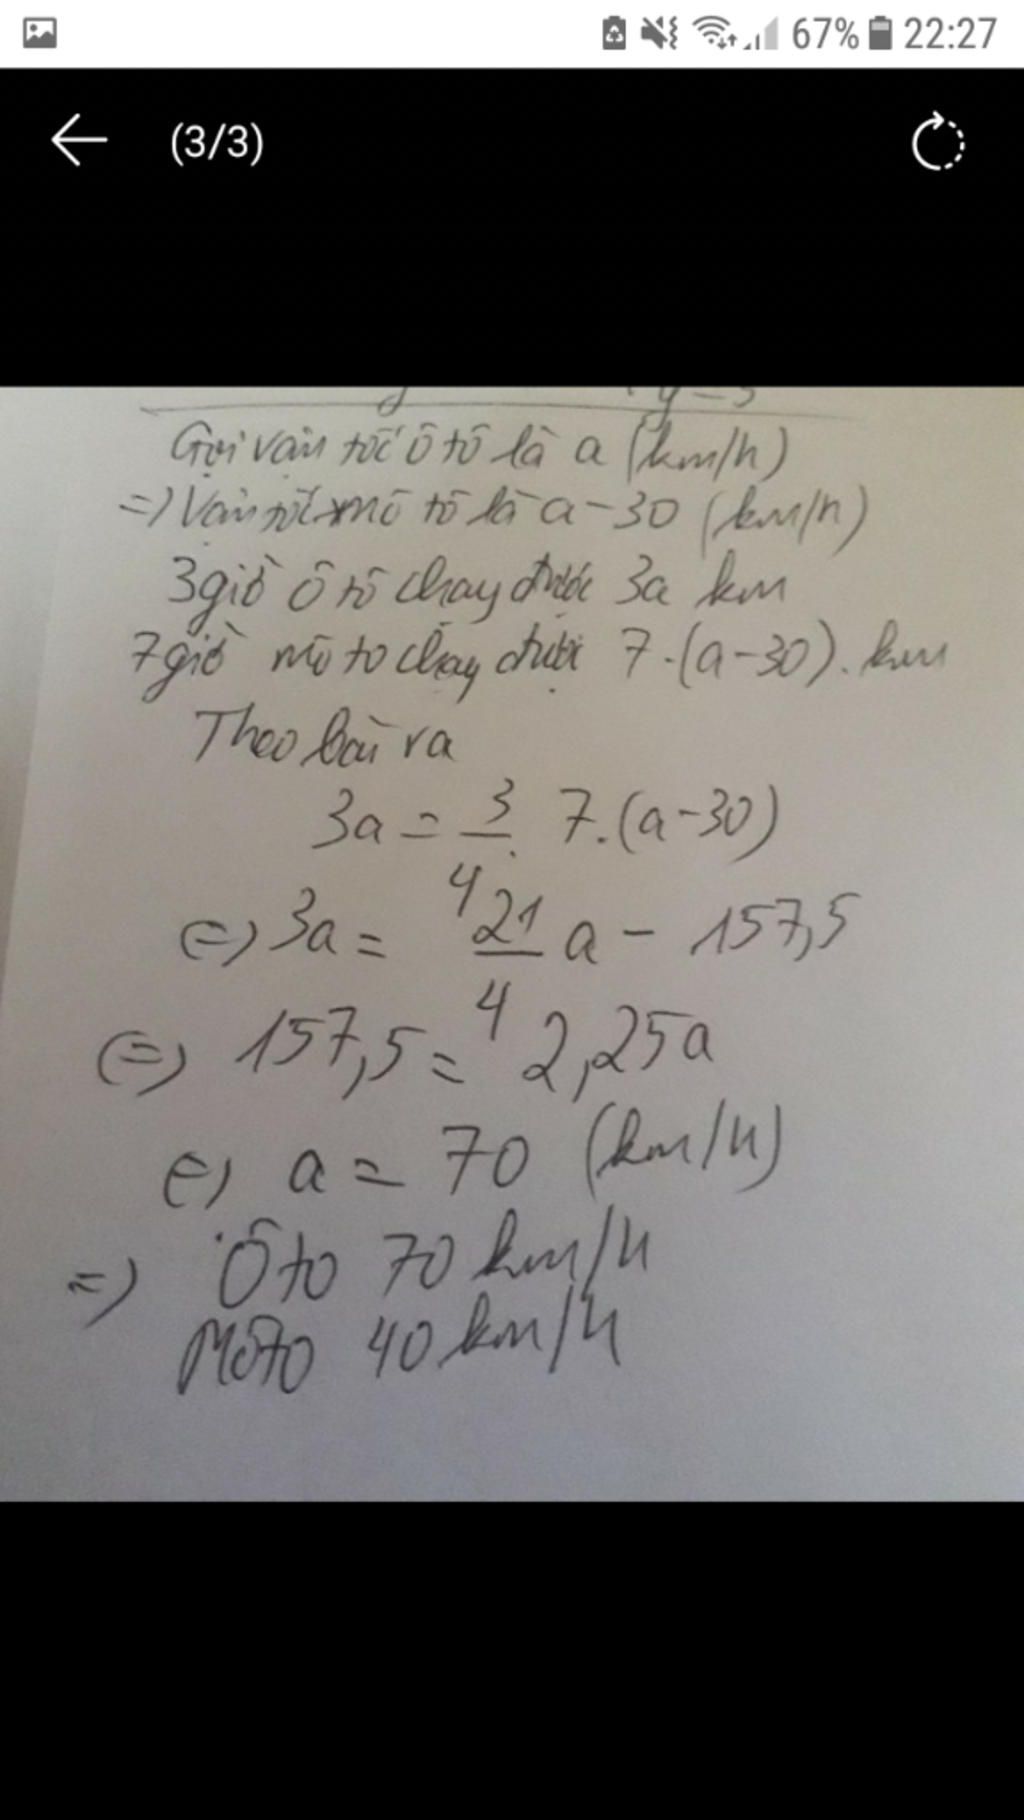 67% 22:27
(3/3)
y = 5
Gọi vận tốc ô tô là a (km/h)
=> Vận tốc mô tô là a - 30 (km/h)
3 giờ ô tô chạy được 3a km
7 giờ mô to chạy được 7.(a-30). km
Theo bài ra
3a = 3/4 . 7.(a-30)
<=> 3a = 21/4 a - 157,5
<=> 157,5 = 2,25a
<=> a = 70 (km/h)
=> Ôto 70 km/h
Môto 40 km/h